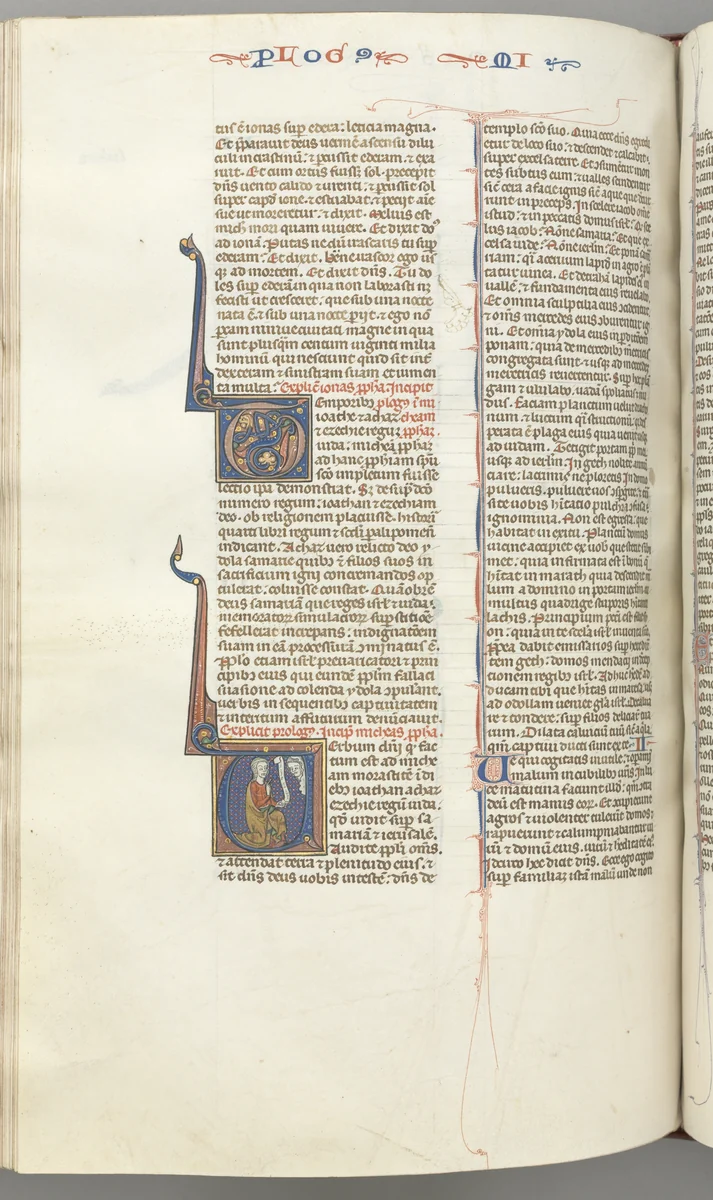 PLOG9 MI
tus ē ionas sup edera: leticia magna.
Et pparavit deus verme ascensu dilu
culi in crastinū: & pcussit ederam: & exa
ruit. Et cum ortus fuiss; sol. precepit
dns vento calido & urenti: & pcussit sol
super capd ione. & estuabat: & petiit aīe
sue ut moreretur: & dixit. Melius est
mich mori quam vivere. Et dixit do
ad ionā. Putas ne bn irascaris tu sup
ederam: Et dixit. bene irascor ego us
q; ad mortem. Et dixit dns. Tu do
les sup ederā in qua non laborasti nꝫ
fecisti ut cresceret. que sub una nocte
nata ē: & sub una nocte piit. & ego nō
pcam ninive civitati magne in qua
sunt plusq̄m centum viginti milia
hominū qui nesciunt quid sit int
dexteram & sinistram suam & iumen
ta multa. Explic ionas ppha. Incipit
Temporibꝫ plogꝰ ī mi
ioathe & achaz cheam
& ezechie regū ppham.
iuda. micheā pphaz
ad hanc pphiam spū
sco impletum fuisse
lectio ipa demonstrat. Sꝫ de supdco
numero regum: ioathan & ezechiam
deo. ob religionem placuisse. historiā
quarti libri regum & scdi palipomenō
indicant. Achaz vero relicto deo y
dola samarie quibꝫ & filios suos in
sacrificium igni concremandos op
tulerat. coluisse constat. Quā ob rē
deus samariā que reges isrl & iuda.
memoratos simulacroꝝ supstitiōe
fefellerat increpans: indignatōem
suam in eā processuram cōminatus ē.
Pplo etiam isrl prevaricatori & prin
cipibꝫ eius qui eundē pplm fallaci
suasione ad colenda ydola cōpulant.
verbis in sequentibꝫ captivitatem
& interitum affuturum denūciavit.
Explicit prologꝰ. Incip micheas ppha.
Verbum dni q̄ fac
tum est ad miche
am morastitē ī di
ebꝫ ioathan achaz
ezechie regū iuda.
qd vidit sup sa
mariā & ierusalē.
Audite ppli oms.
& attendat terra & plenitudo eius. &
sit dns deus vobis in testē: dns de
templo sco suo. Quia ecce dns egredi
etur de loco suo: & descendet & calcabit
super excelsa terre. Et sumētur mon
tes subtus eum: & valles scindentur
sic cera a facie ignis sic aque que decur
runt in preceps. In scelere iacob omē
istud: & in peccatis domus isrl. Qd sce
lus iacob: Nōne samaria: Et que ex
celsa iude: Nōne ierlm: Et ponā sama
riam: q̄i acervum lapidū in agro
tatur vinea. Et detrahā lapides eius in
vallē: & fundamenta eius revelabo.
Et omnia sculptilia eius cōcidentur
& oms mercedes eius cōburentur ig
ni. Et omia ydola eius in pditionem
ponam: quia de mercedibꝫ meretricis
congregata sunt: & usq; ad mercedem
meretricis revertentur. Sup hoc plan
gam & ululabo. vadā spoliatus & nu
dus. Faciam planctum velud draco
num: & luctum q̄i structionū: quia des
perata ē plaga eius quia venit usq;
ad iudam. Tetigit portam ppli mei
usq; ad ierlm. In geth nolite annun
ciare: lacrimis ne ploretis. In domo
pulveris. pulvere vos cōspgite: & trāsi
site vobis hitatio pulchra cōfusa
ignominia. Non est egressa: que
habitat in exitu. Planctū domus
vicine accipiet ex vob que stetit sibi
met: quia infirmata est ī bonū q̄
hītat in marath quia descendit ma
lum a domino in portam ierlm.
multus quadrige stuporis hītanti
lachis. Principium pccī est filie sy
on: quia in te scelera isrl inventa sunt.
Pptea dabit emissarios sup heredita
tem geth: domos mendacii in decep
tionem regibꝫ isrl. Adhuc hedē ad
ducam tibi que hītas in maresa usq;
ad odollam veniet gla isrl. Decalva
re & tondere. sup filios deliciaꝝ tua
rum: Dilata calviciū tuū sic aqla.
qm captivi ducti sunt ex te. II
Ve qui cogitatis inutile: & opamini
malum in cubilibꝫ vris. In lu
ce matutina faciunt illd: qm cōtra
deū est manus eoꝝ. Et cōcupierunt
agros & violenter tulerūt domos &
rapuerunt & calumpniabantur vi
rū & domū eius. virū & heditatē eius.
Idcirco hec dicit dns. Ecce ego cogito
sup familiaz istā malū unde non